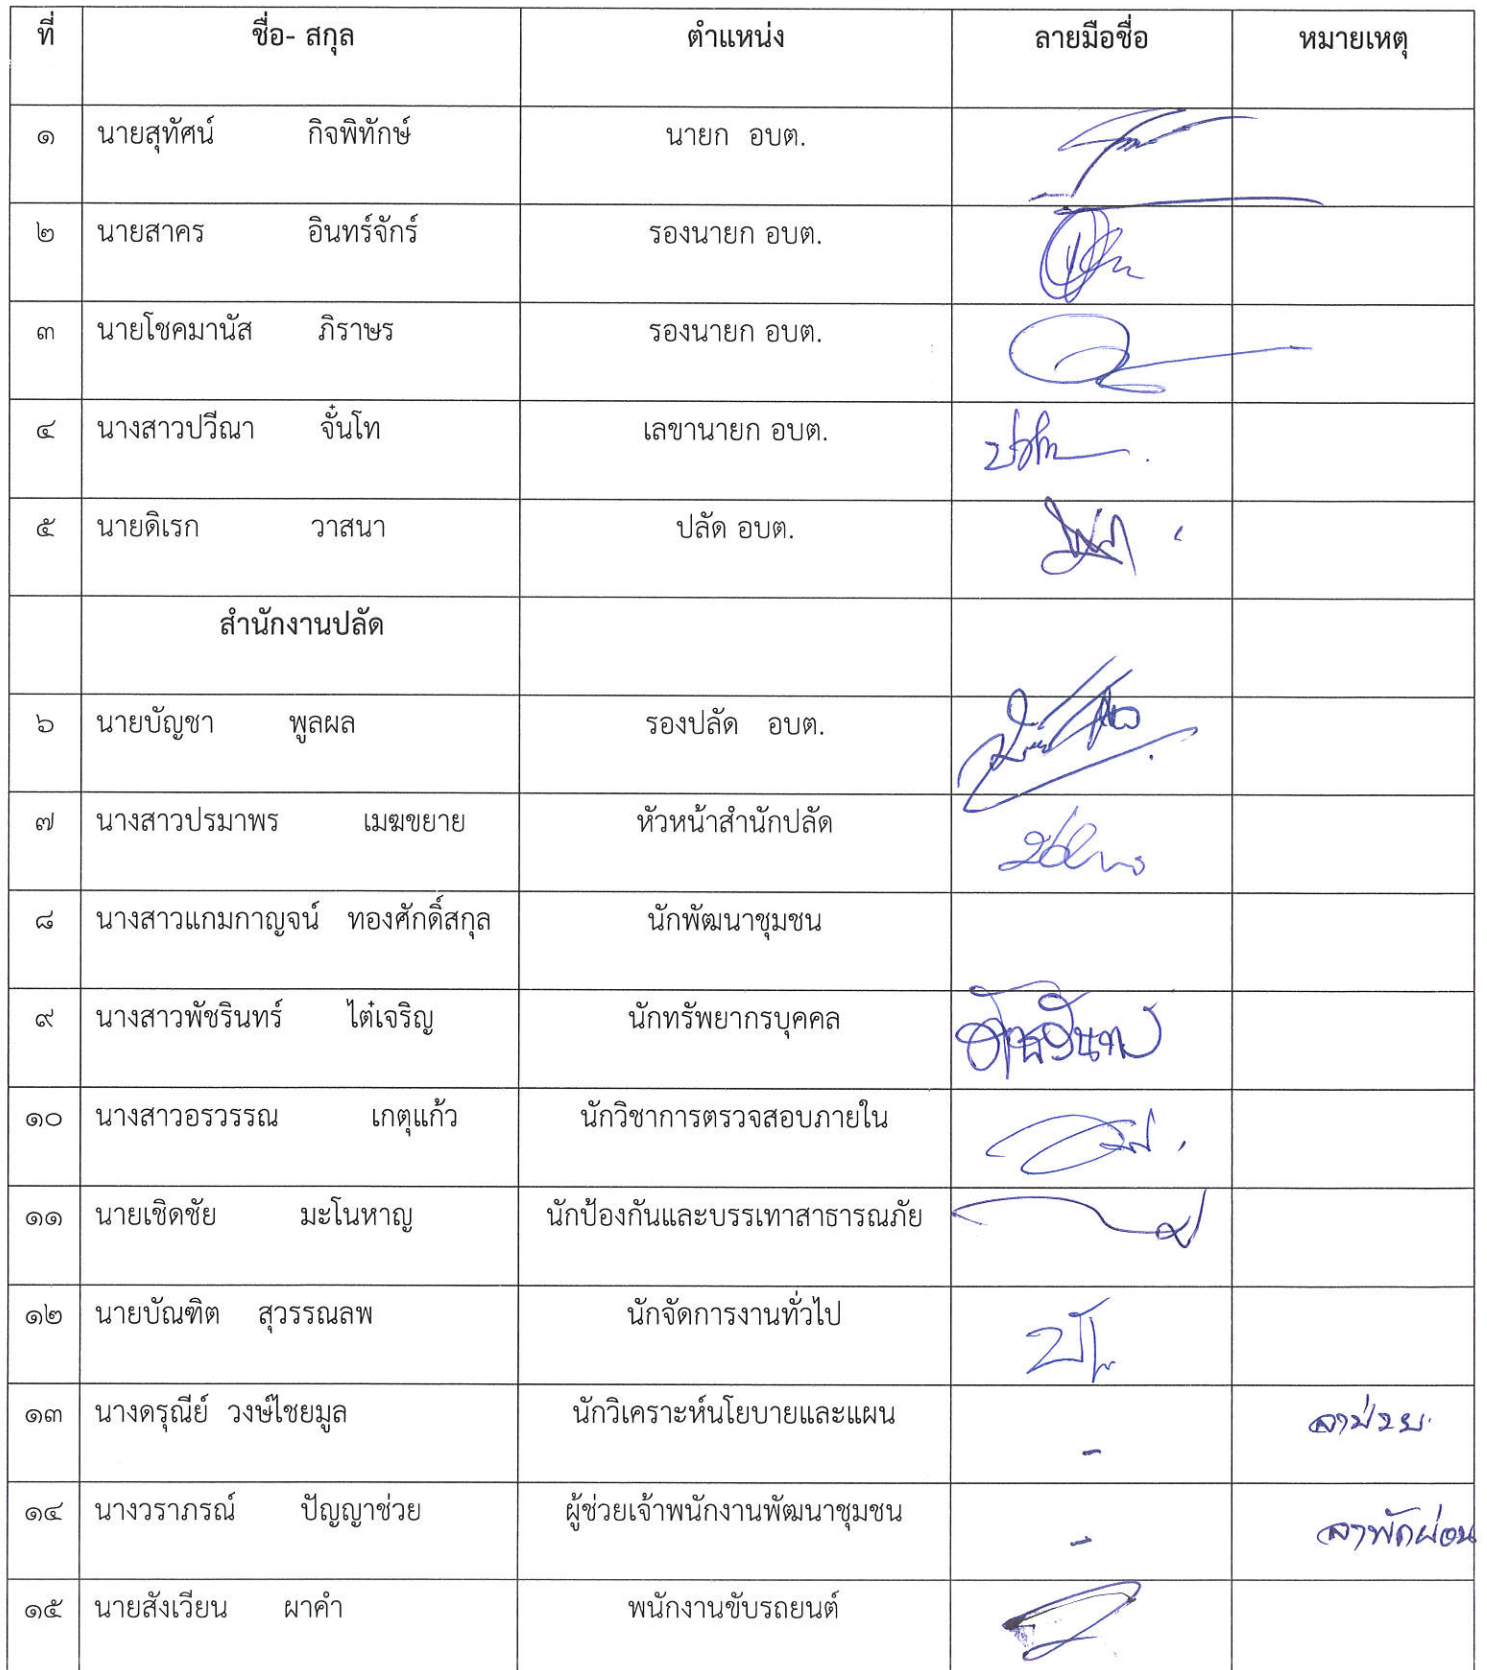 ที่ ชื่อ- สกุล ตำแหน่ง ลายมือชื่อ หมายเหตุ
๑ นายสุทัศน์ กิจพิทักษ์ นายก อบต.
๒ นายสาคร อินทร์จักร์ รองนายก อบต.
๓ นายโชคมานัส ภิราษร รองนายก อบต.
๔ นางสาวปวีณา จั๋นโท เลขานายก อบต.
๕ นายดิเรก วาสนา ปลัด อบต.
สำนักงานปลัด
๖ นายบัญชา พูลผล รองปลัด อบต.
๗ นางสาวปรมาพร เมฆขยาย หัวหน้าสำนักปลัด
๘ นางสาวแกมกาญจน์ ทองศักดิ์สกุล นักพัฒนาชุมชน
๙ นางสาวพัชรินทร์ ไต๋เจริญ นักทรัพยากรบุคคล
๑๐ นางสาวอรวรรณ เกตุแก้ว นักวิชาการตรวจสอบภายใน
๑๑ นายเชิดชัย มะโนหาญ นักป้องกันและบรรเทาสาธารณภัย
๑๒ นายบัณฑิต สุวรรณลพ นักจัดการงานทั่วไป
๑๓ นางดรุณีย์ วงษ์ไชยมูล นักวิเคราะห์นโยบายและแผน - ลาป่วย
๑๔ นางวราภรณ์ ปัญญาช่วย ผู้ช่วยเจ้าพนักงานพัฒนาชุมชน - ลาพักผ่อน
๑๕ นายสังเวียน ผาคำ พนักงานขับรถยนต์